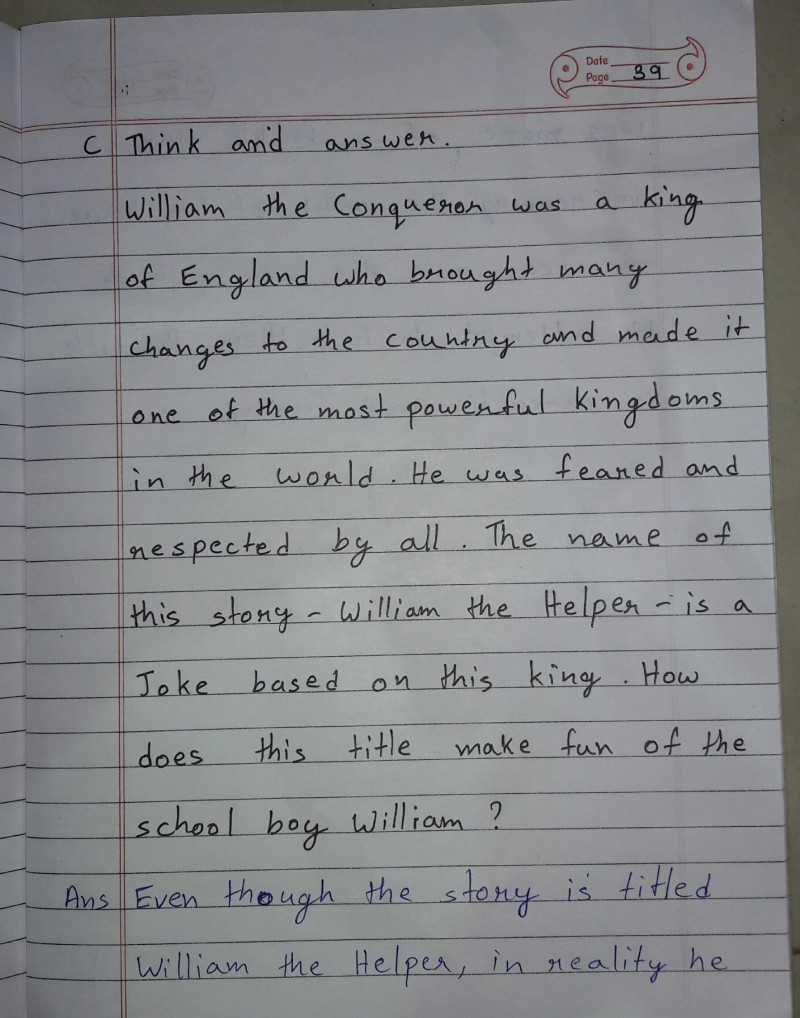 Date
Page 39
C Think and answer.
William the Conqueror was a king
of England who brought many
changes to the country and made it
one of the most powerful kingdoms
in the world. He was feared and
respected by all. The name of
this story - William the Helper - is a
Joke based on this king. How
does this title make fun of the
school boy William ?
Ans Even though the story is titled
William the Helper, in reality he